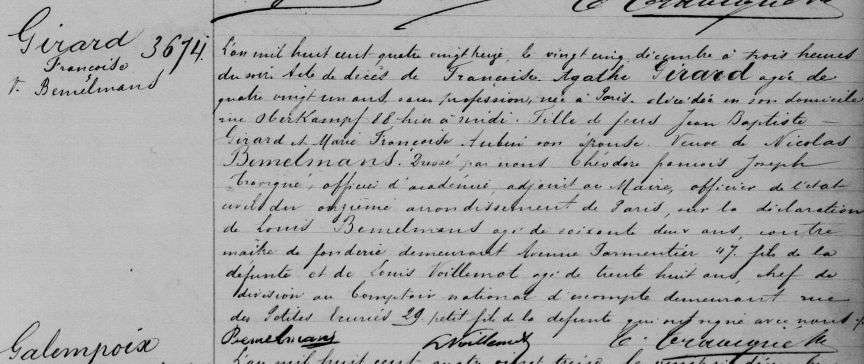 Girard 3674
Françoise
Vᵉ Bemelmans
L'an mil huit cent quatre vingt treize, le vingt cinq décembre à trois heures
du soir Acte de décès de Françoise Agathe Girard agée de
quatre vingt un ans, sans profession, née à Paris. décédée en son domicile
rue Oberkampf 88 hier à midi. Fille de feus Jean Baptiste
Girard et Marie Françoise son épouse. Veuve de Nicolas
Bemelmans. Dressé par nous Théodore François Joseph
officier d'académie, adjoint au Maire, officier de l'état
civil du onzième arrondissement de Paris, sur la déclaration
de Louis Bemelmans agé de soixante deux ans, contre
maître de fonderie demeurant Avenue Parmentier 47. fils de la
défunte et de Louis Voillemot agé de trente huit ans, chef de
division au Comptoir national d'escompte demeurant rue
des Petites Ecuries 29 petit fils de la défunte qui ont signé avec nous
Bemelmans L Voillemot
Galempoix
L'an mil huit cent quatre vingt treize, le